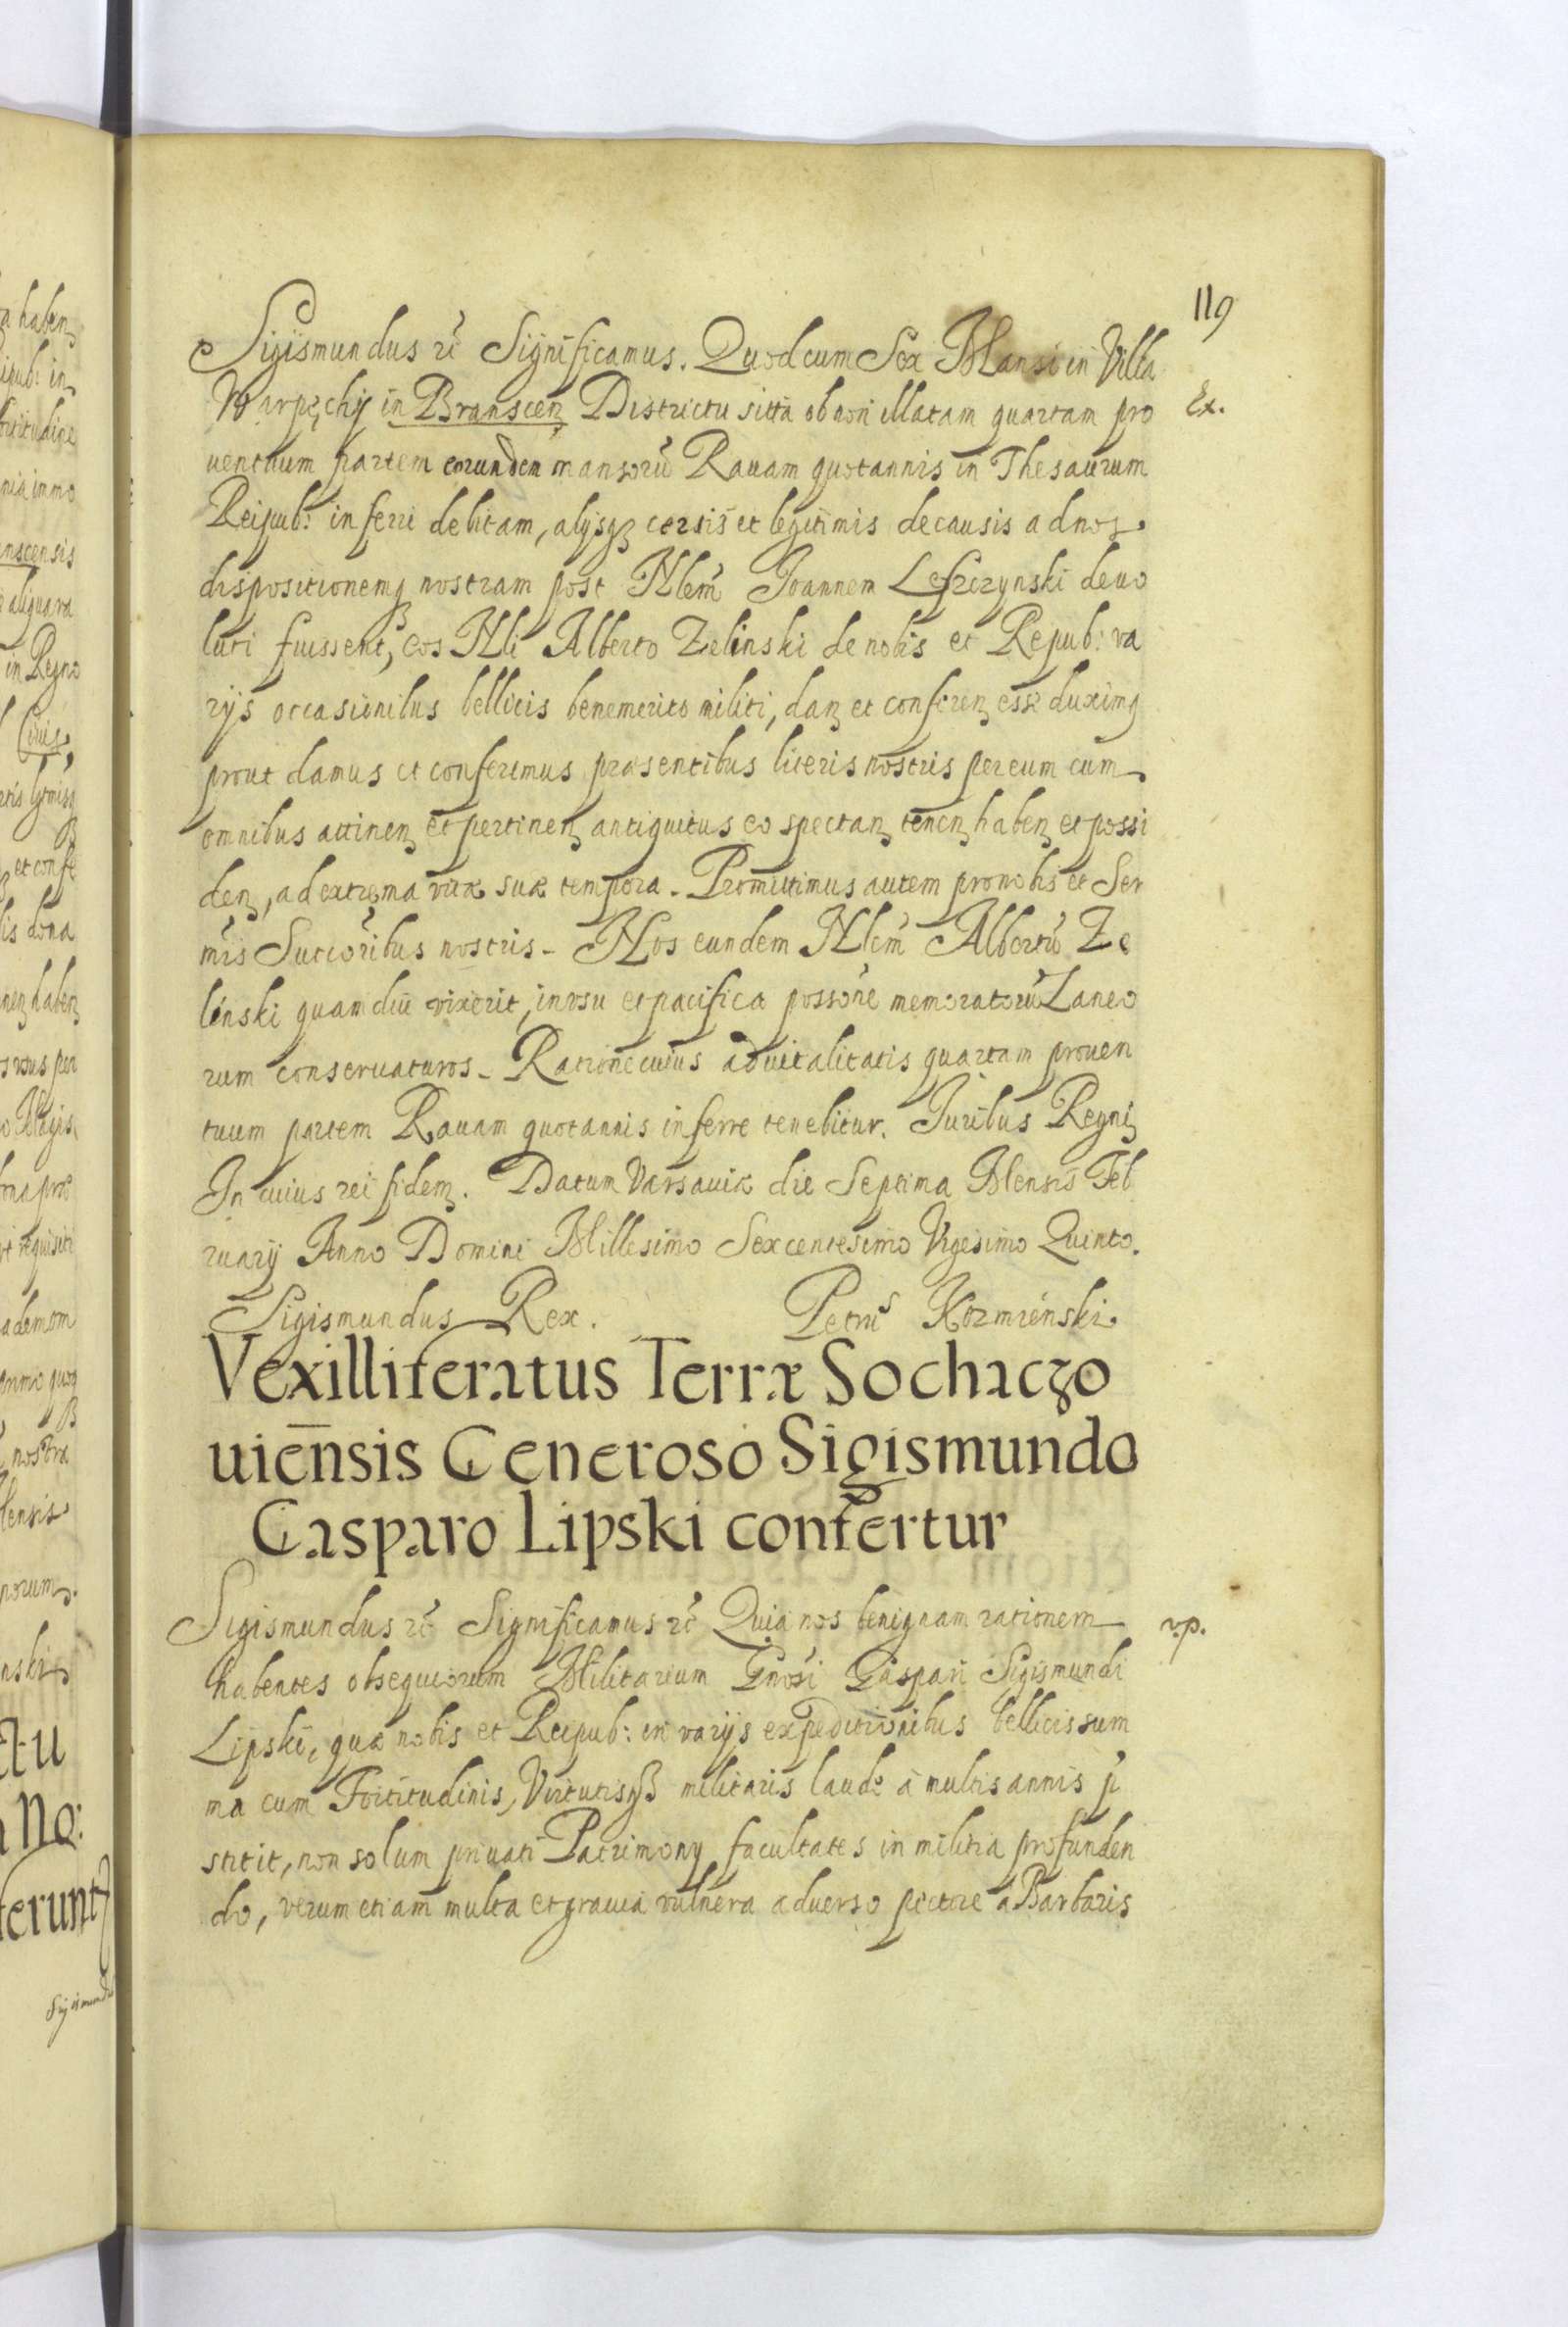 119
Sigismundus rc Significamus. Quod cum Sex Mansi in Villa
Warpęchy in Branscen Districtu sitta ob non illatam quartam pro
uentuum partem eorundem mansorū Rauam quotannis in Thesaurum
Ex.
Reipub: inferri debitam, alijsq certis et legitimis de causis ad nos
dispositionemq nostram post Nlem Joannem Leszczynski deuo
luti fuissent, eos Nli Alberto Zelinski de nobis et Repub: va
rijs occasionibus bellicis benemerito militi, dan et conferen esse duximq
prout damus et conferimus præsentibus literis nostris per eum cum
omnibus attinen et pertinen antiquitus eo spectan tenen haben et possi
den, ad extręma vitæ suæ tempora. Promittimus autem pro nobis et Ser
mis Succoribus nostris. Nos eundem Nlem Albertū Ze
linski quam diu vixerit, in vsu et pacifica possone memoratorū Laneo
rum conseruaturos. Ratione cuius aduitalitatis quartam prouen
tuum partem Rauam quotannis inferre tenebitur. Juribus Regni
In cuius rei fidem. Datum Varsauiæ die Septima Mensis Feb
ruarij Anno Domini Millesimo Sexcentesimo Vigesimo Quinto.
Sigismundus Rex. Petrus Kozmiénski
Vexilliferatus Terræ Sochaczo
uiensis Generoso Sigismundo
Casparo Lipski confertur
Sigismundus rc Significamus rc Quia nos benignam rationem
v.p.
habentes obsequiorum Militarium Gnosi Gaspari Sigismundi
Lipski, quæ nobis et Reipub: in varijs expeditionibus bellicis sum
ma cum Fortitudinis, Virtutisq militaris laude à multis annis p
stitit, non solum priuati Patrimonij facultates in militia profunden
do, verum etiam multa et grauia vulnera aduerso pectore a Barbaris